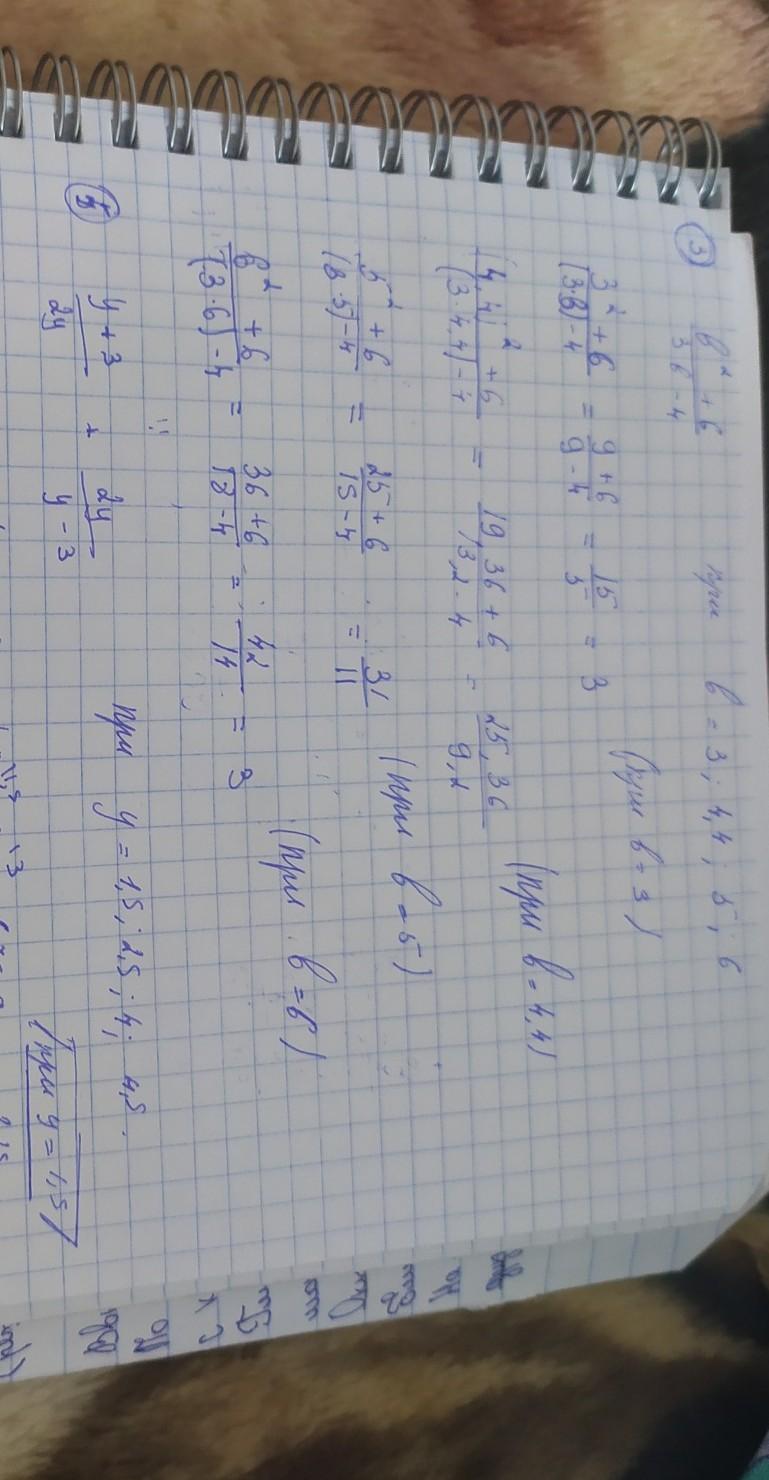 ③ (b² + 6)/(3b - 4) при b = 3; 4,4; 5; 6
(3² + 6)/((3·3) - 4) = (9 + 6)/(9 - 4) = 15/5 = 3 (при b = 3)
((4,4)² + 6)/((3·4,4) - 4) = (19,36 + 6)/(13,2 - 4) = 25,36/9,2 (при b = 4,4)
(5² + 6)/((3·5) - 4) = (25 + 6)/(15 - 4) = 31/11 (при b = 5)
(6² + 6)/((3·6) - 4) = (36 + 6)/(18 - 4) = 42/14 = 3 (при b = 6)
(y + 3)/2y + 2y/(y - 3) при y = 1,5; 2,5; 4; 4,5.
(при y = 1,5)